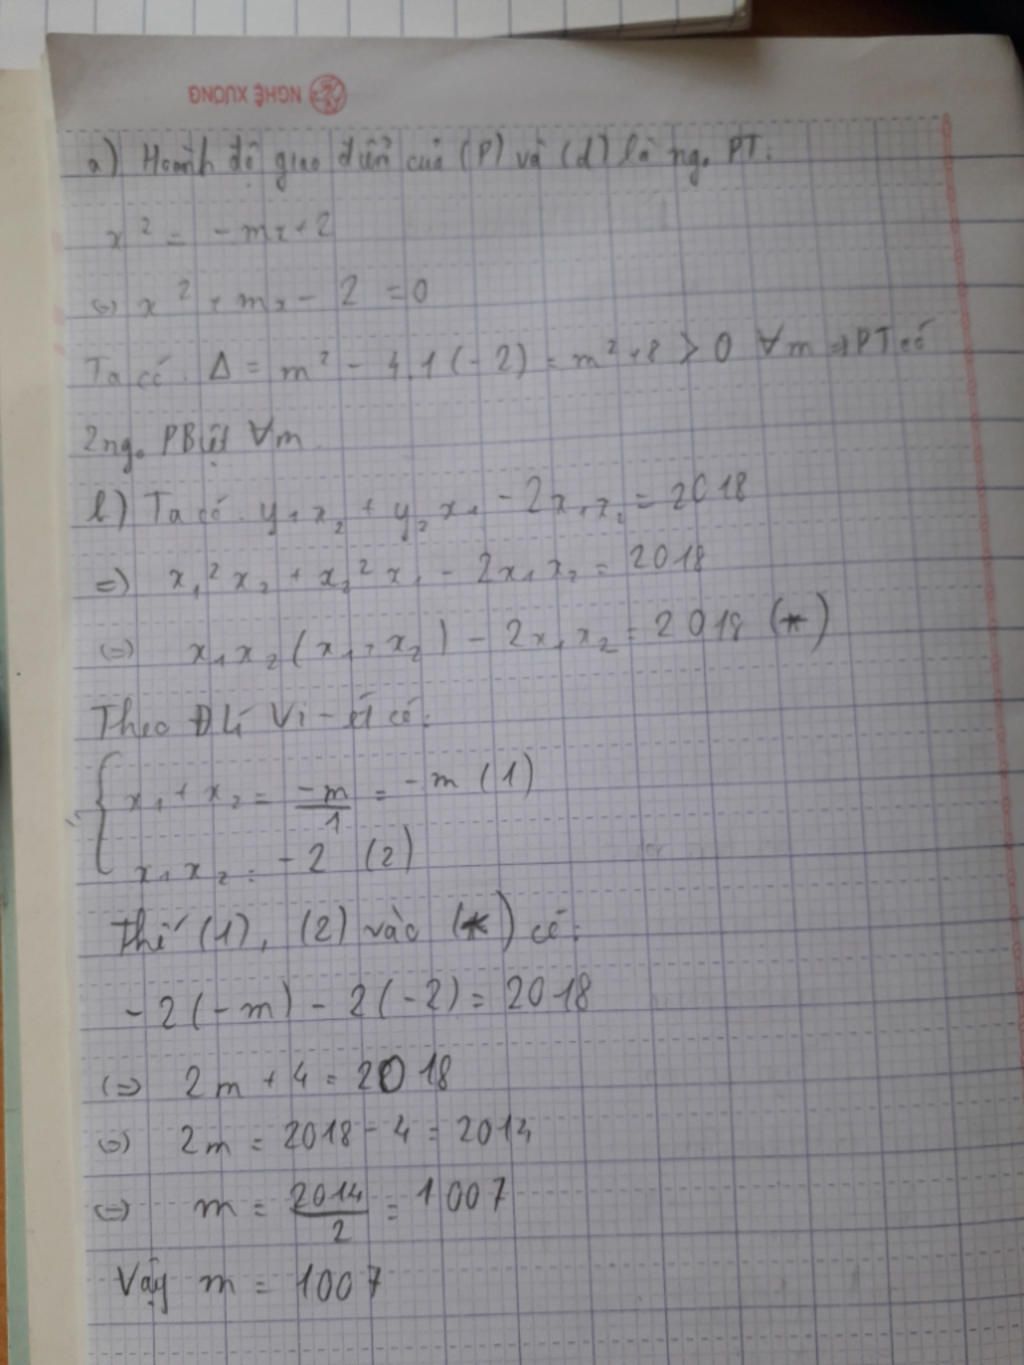 NGHỆ XUONG
a) Hoành độ giao điểm của (P) và (d) là ng. PT:
x² = -mx + 2
(=) x² + mx - 2 = 0
Ta có. Δ = m² - 4.1(-2) = m² + 8 > 0 ∀m => PT có
2 ng. PBiệt ∀m
b) Ta có. y₁x₂ + y₂x₁ - 2x₁x₂ = 2018
=) x₁²x₂ + x₂²x₁ - 2x₁x₂ = 2018
(=) x₁x₂(x₁ + x₂) - 2x₁x₂ = 2018 (*)
Theo ĐLí Vi-ét có:
{ x₁ + x₂ = -m/1 = -m (1)
x₁x₂ = -2 (2)
Thế (1), (2) vào (*) có:
-2(-m) - 2(-2) = 2018
(=) 2m + 4 = 2018
(=) 2m = 2018 - 4 = 2014
(=) m = 2014/2 = 1007
Vậy m = 1007